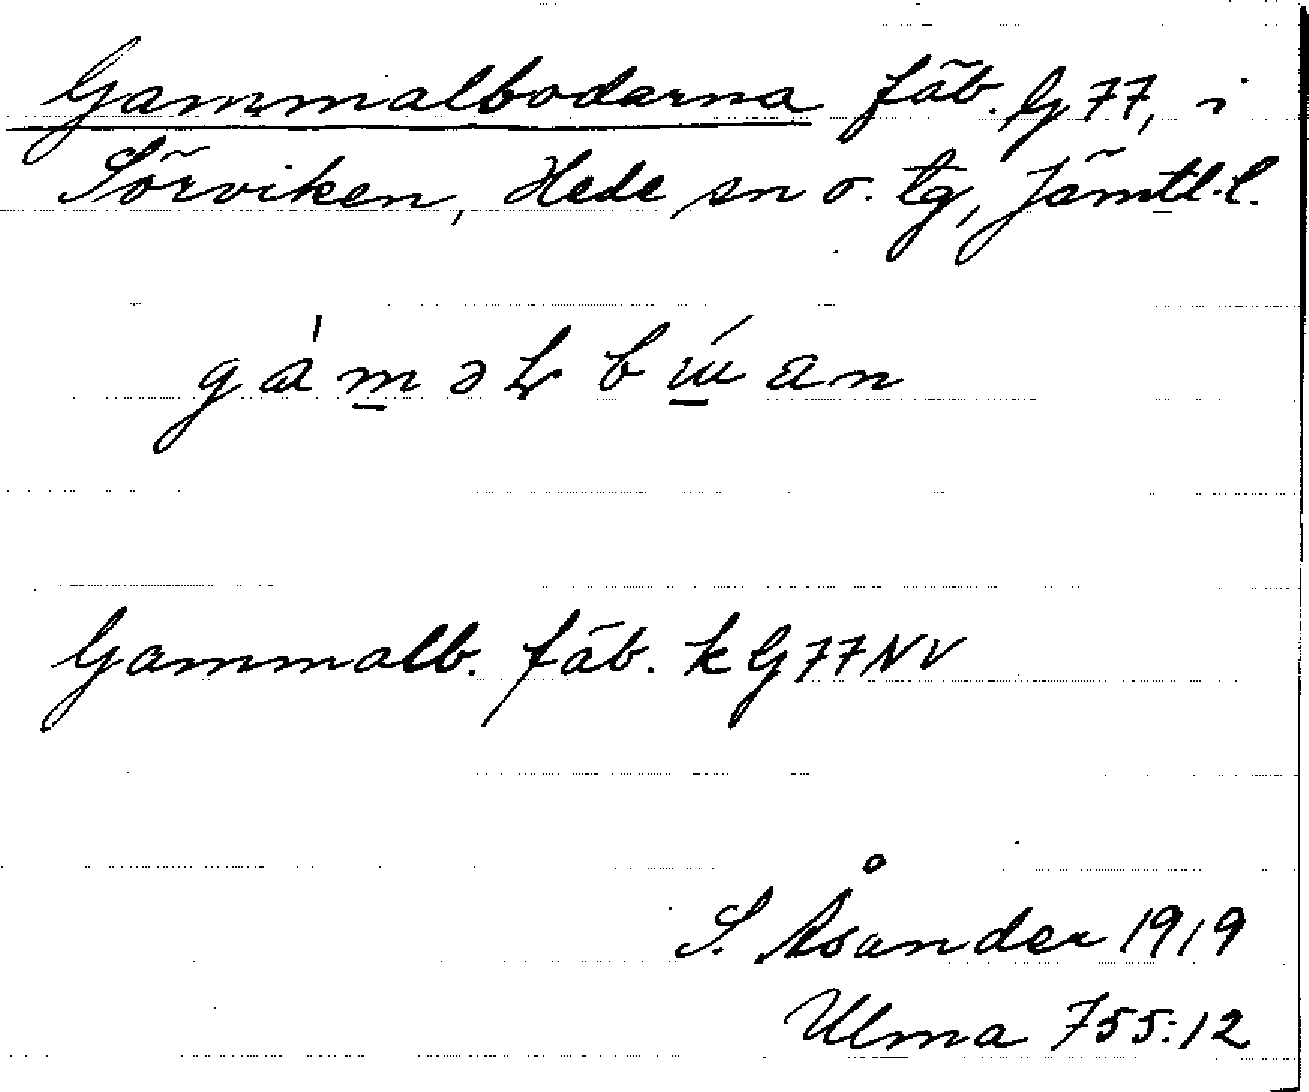 Gammalbodarna fäb. G77, i
Sörviken, Hede sn o. tg, Jämtl. l.
Gammalb. fäb. k G77NV
S. Åsander 1919
Ulma 755:12